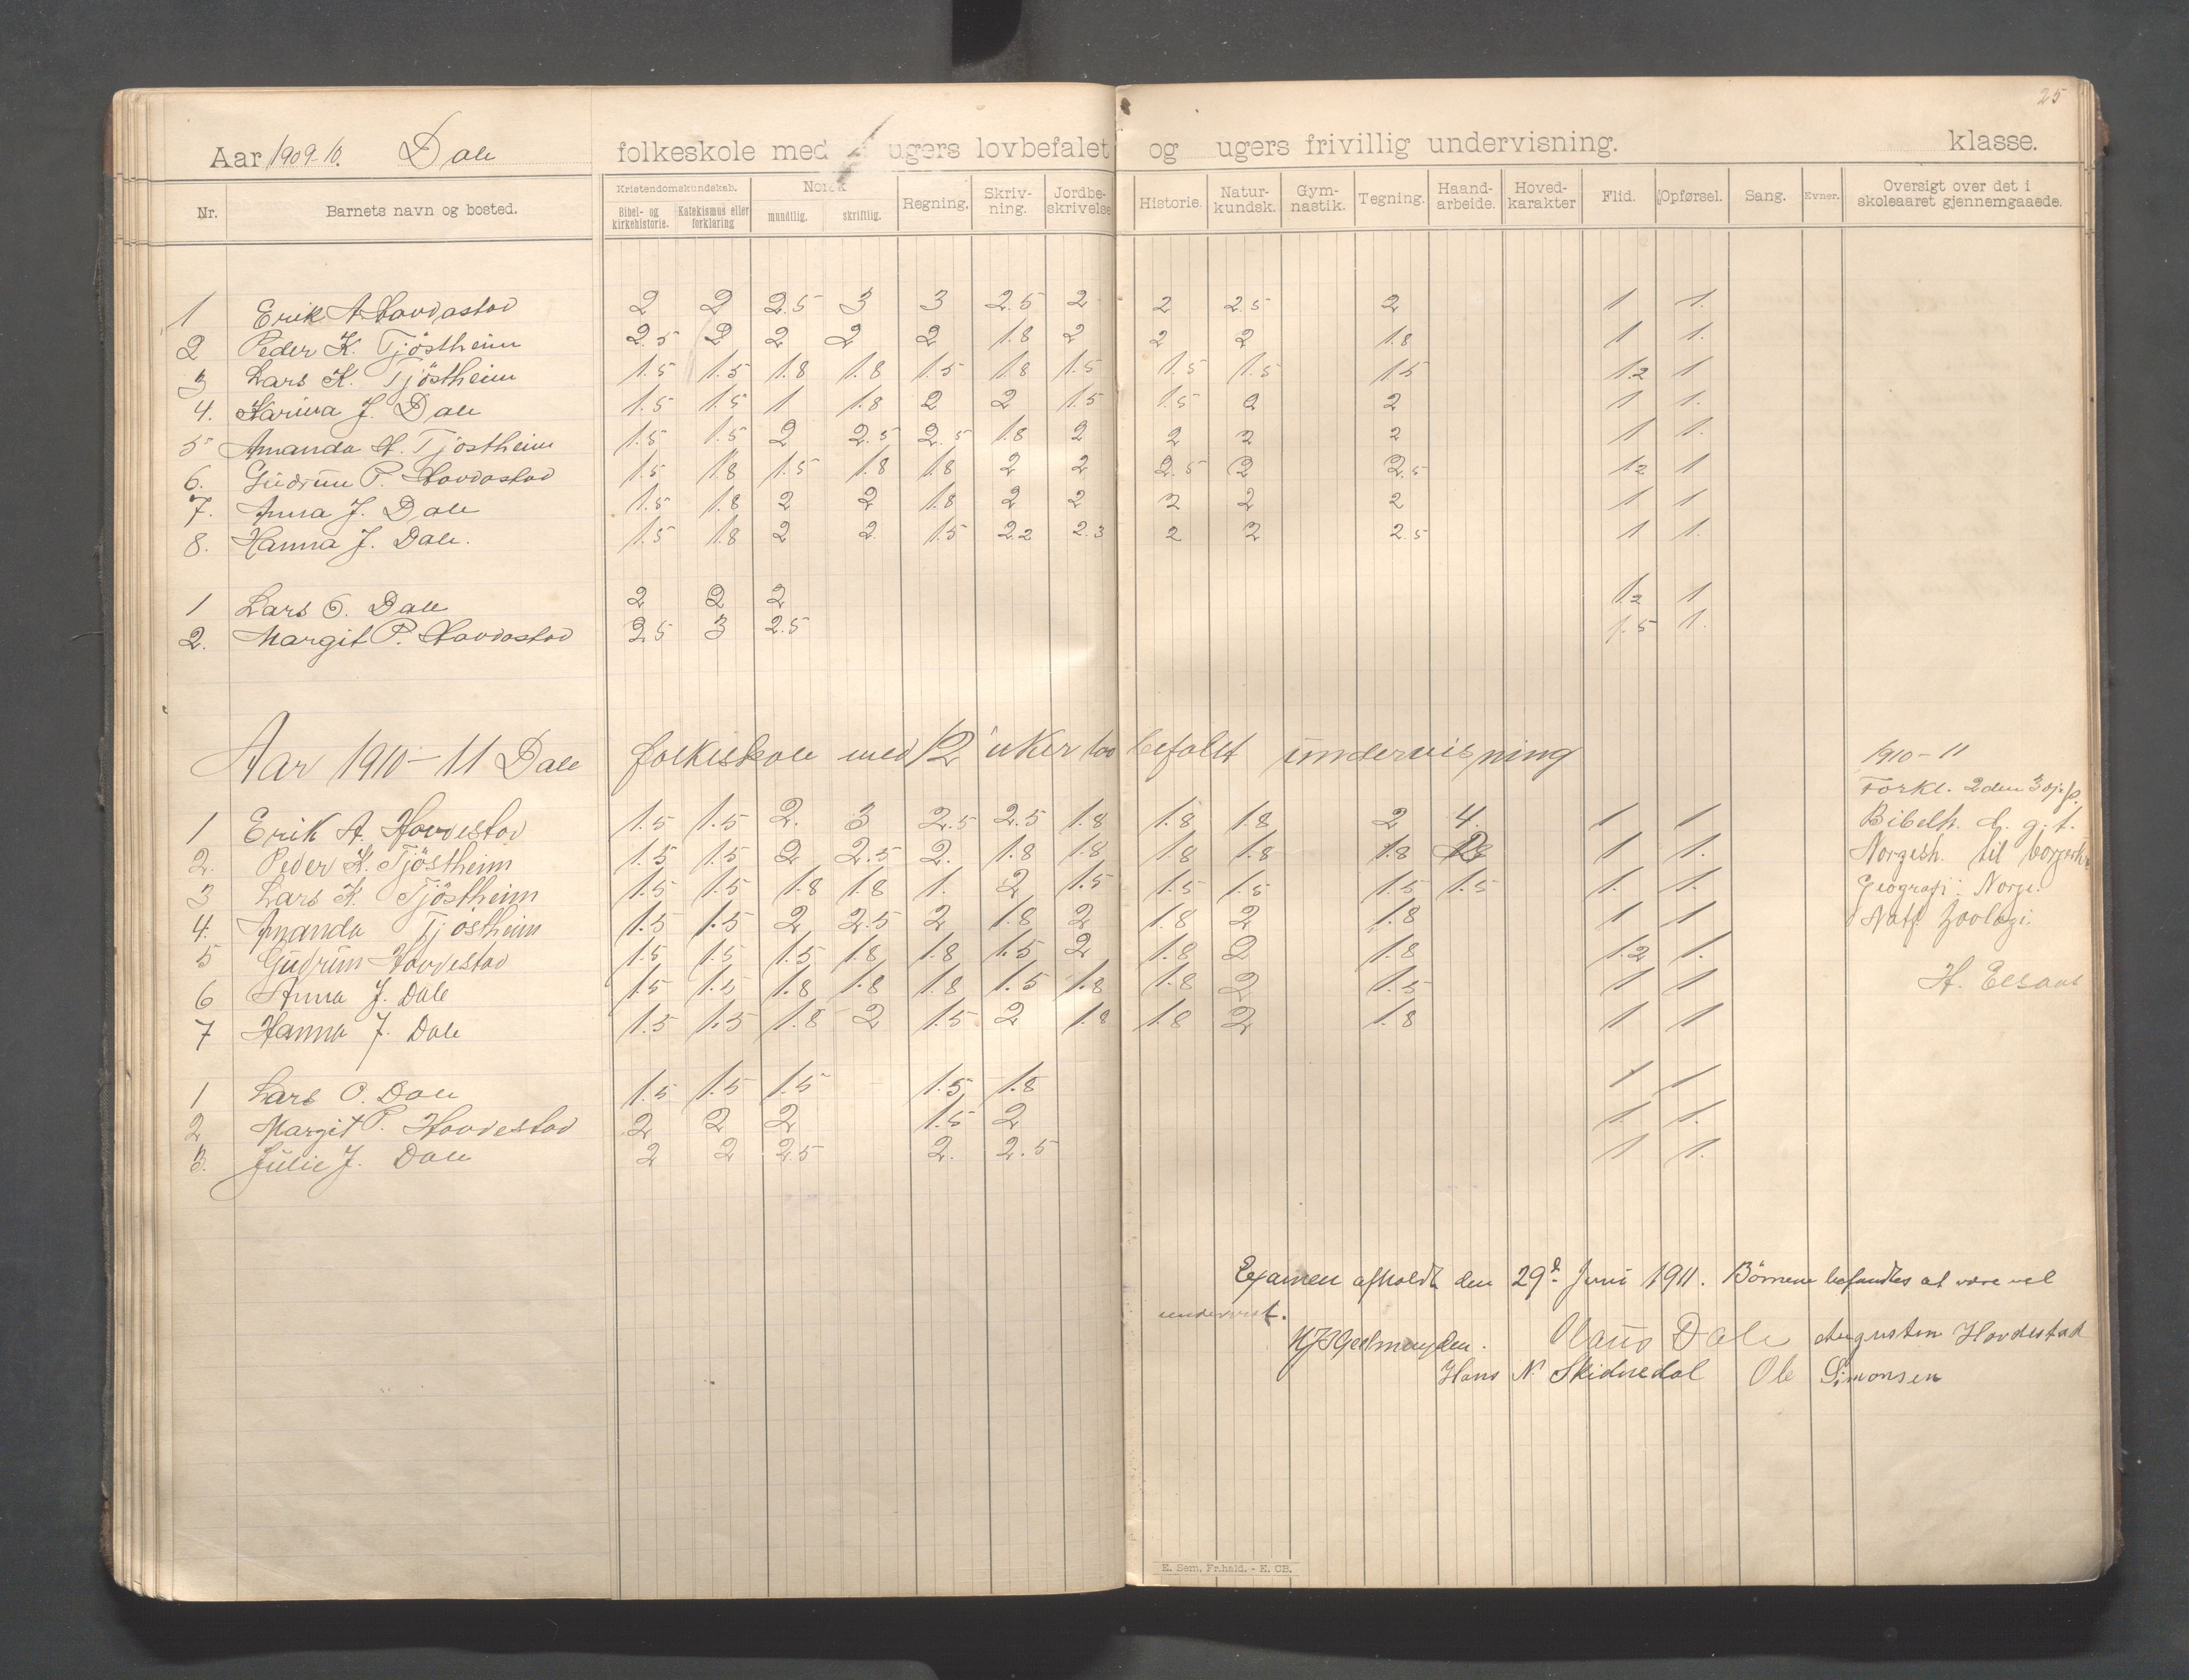 25
Aar 1909-10. Dale folkeskole med ugers lovbefalet og ugers frivillig undervisning. klasse.
Nr. Barnets navn og bosted. Kristendomskundskab. Bibel- og kirkehistorie. Katekismus eller forklaring Norsk mundtlig. skriftlig. Regning. Skriv-ning. Jordbe-skrivelse Historie. Natur-kundsk. Gym-nastik. Tegning. Haand-arbeide. Hoved-karakter Flid. Opførsel. Sang. Evner. Oversigt over det i skoleaaret gjennemgaaede.
1 Erik A Hovdastad 2 2 2.5 3 3 2.5 2 2 2.5 2 1 1.
2 Peder K. Tjöstheim 2.5 2 2 2 2 1.8 2 2 2 1.8 1 1.
3 Lars K. Tjöstheim 1.5 1.5 1.8 1.8 1.5 1.8 1.5 1.5 1.5 1.5 1.2 1
4. Karina J. Dale 1.5 1.5 1 1.8 2 2 1.5 1.5 2 2 1 1.
5 Amanda H. Tjöstheim 1.5 1.5 2 2.5 2.5 1.8 2 2 2 2 1 1.
6. Gudrun P. Hovdastad 1.5 1.8 1.5 1.8 1.8 2 2 2.5 2 2.5 1.2 1
7. Anna J. Dale 1.5 1.8 2 2 1.8 2 2 2 2 2 1 1
8. Hanna J. Dale. 1.5 1.8 2 2. 1.5 2.2 2.3 2 2 2.5 1 1.
1 Lars O. Dale 2 2 2 1.2 1
2. Margit P. Hovdastad 2.5 3 2.5 1.5 1.
Aar 1910-11 Dale folkeskole med 12 uker lovbefalet undervisning
1 Erik A. Hovdestad 1.5 1.5 2. 3 2.5 2.5 1.8 1.8 1.8 2 4. 1 1
2. Peder K. Tjöstheim 1.5 1.5 2 2.5 2. 1.8 1.8 1.8 1.8 1.8 1 1.
3 Lars K. Tjöstheim 1.5 1.5 1.8 1.8 1. 2 1.5 1.5 1.5 1.5 1.5 1. 1.
4. Amanda Tjöstheim 1.5 1.5 2 2.5 2 1.8 2 1.8 2 1.8 1 1
5 Gudrun Hovdestad 1.5 1.5 1.5 1.8 1.8 1.5 2 1.8 2 1.8 1.2 1.
6 Anna J. Dale 1.5 1.5 1.8 1.8 1.8 1.5 1.8 1.8 2 1.5 1 1
7 Hanna J. Dale 1.5 1.5 1.8 2 1.5 2 1.8 1.8 2 1.8 1 1
1 Lars O. Dale 1.5 1.5 1.5 1.5 1.8 1 1
2 Margit P. Hovdestad 2 2 2 1.5 2 1 1.
3. Julie J. Dale 2 2 2.5 2. 2.5 1 1.
1910-11
Forkl. 2den 3dje p.
Bibelh. d. g. t.
Norgesh. til
Geografi: Norge.
Nat. Zoologi.
Examen afholdt den 29d. Juni 1911. Börnene befandtes at være vel
undervist.
Claus Dale Augusten Hovdestad
Hans N. Skidnedal Ole Simonsen
E. Sem, Fr.hald. - K. CB.